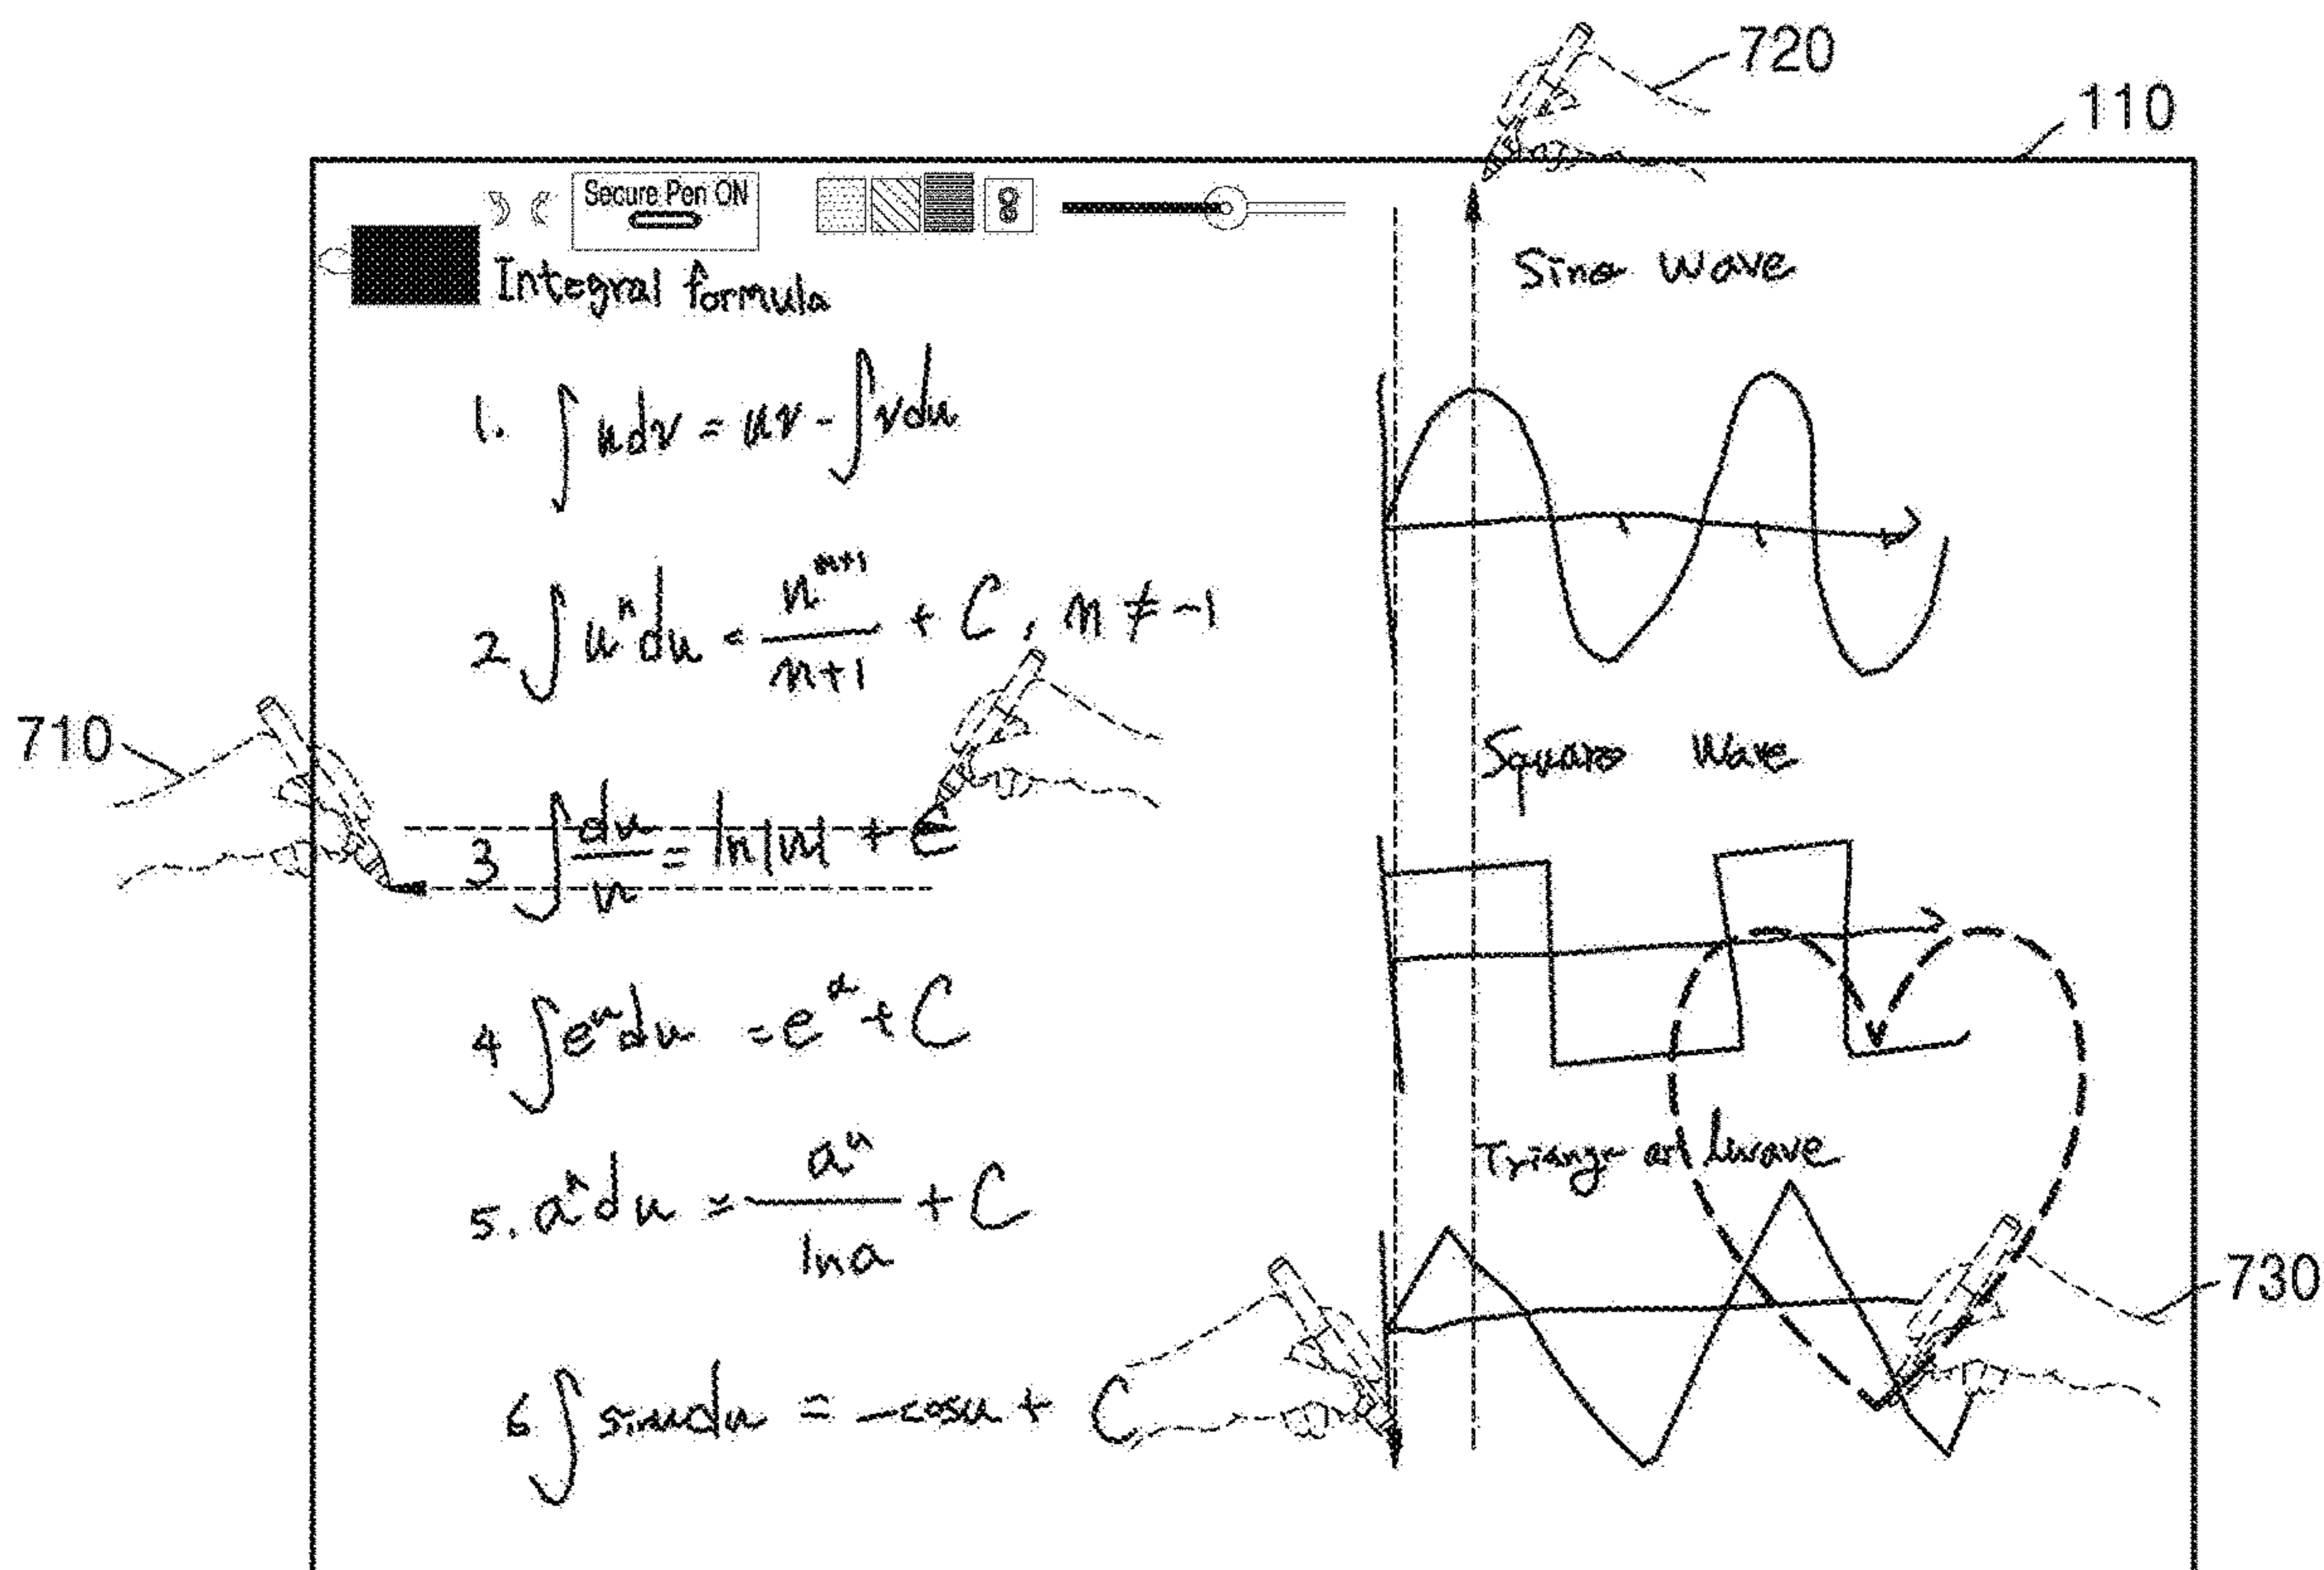 720
110
Secure Pen ON
Integral formula
1. ∫udv = uv - ∫vdu
2 ∫uⁿdu = uⁿ⁺¹/n+1 + C, n ≠ -1
3 ∫du/u = ln|u| + C
4 ∫eᵘdu = eᵘ + C
5. aⁿdu = aᵘ/lna + C
6 ∫sinudu = -cosu + C
710
Sine Wave
Square Wave
wave
730